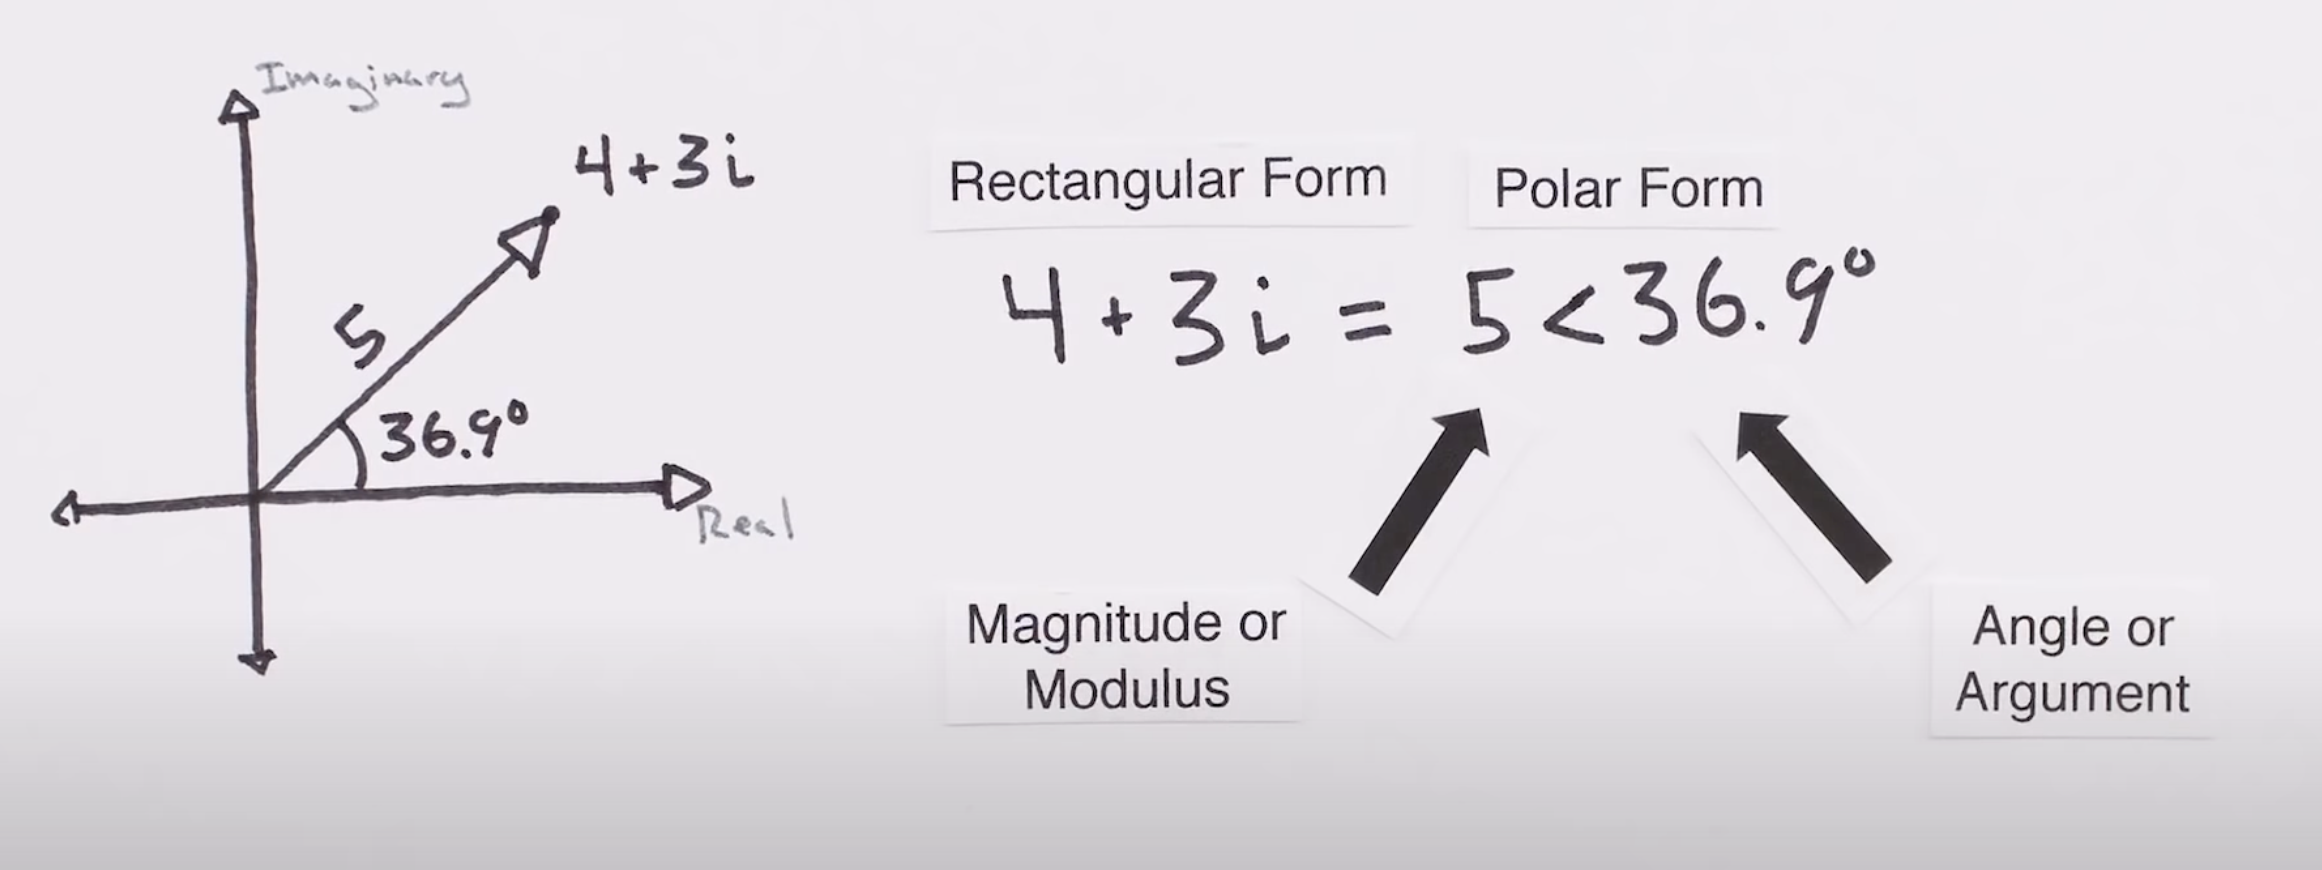 Imaginary
4+3i
5
36.9°
Real
Rectangular Form
Polar Form
4+3i = 5<36.9°
Magnitude or
Modulus
Angle or
Argument